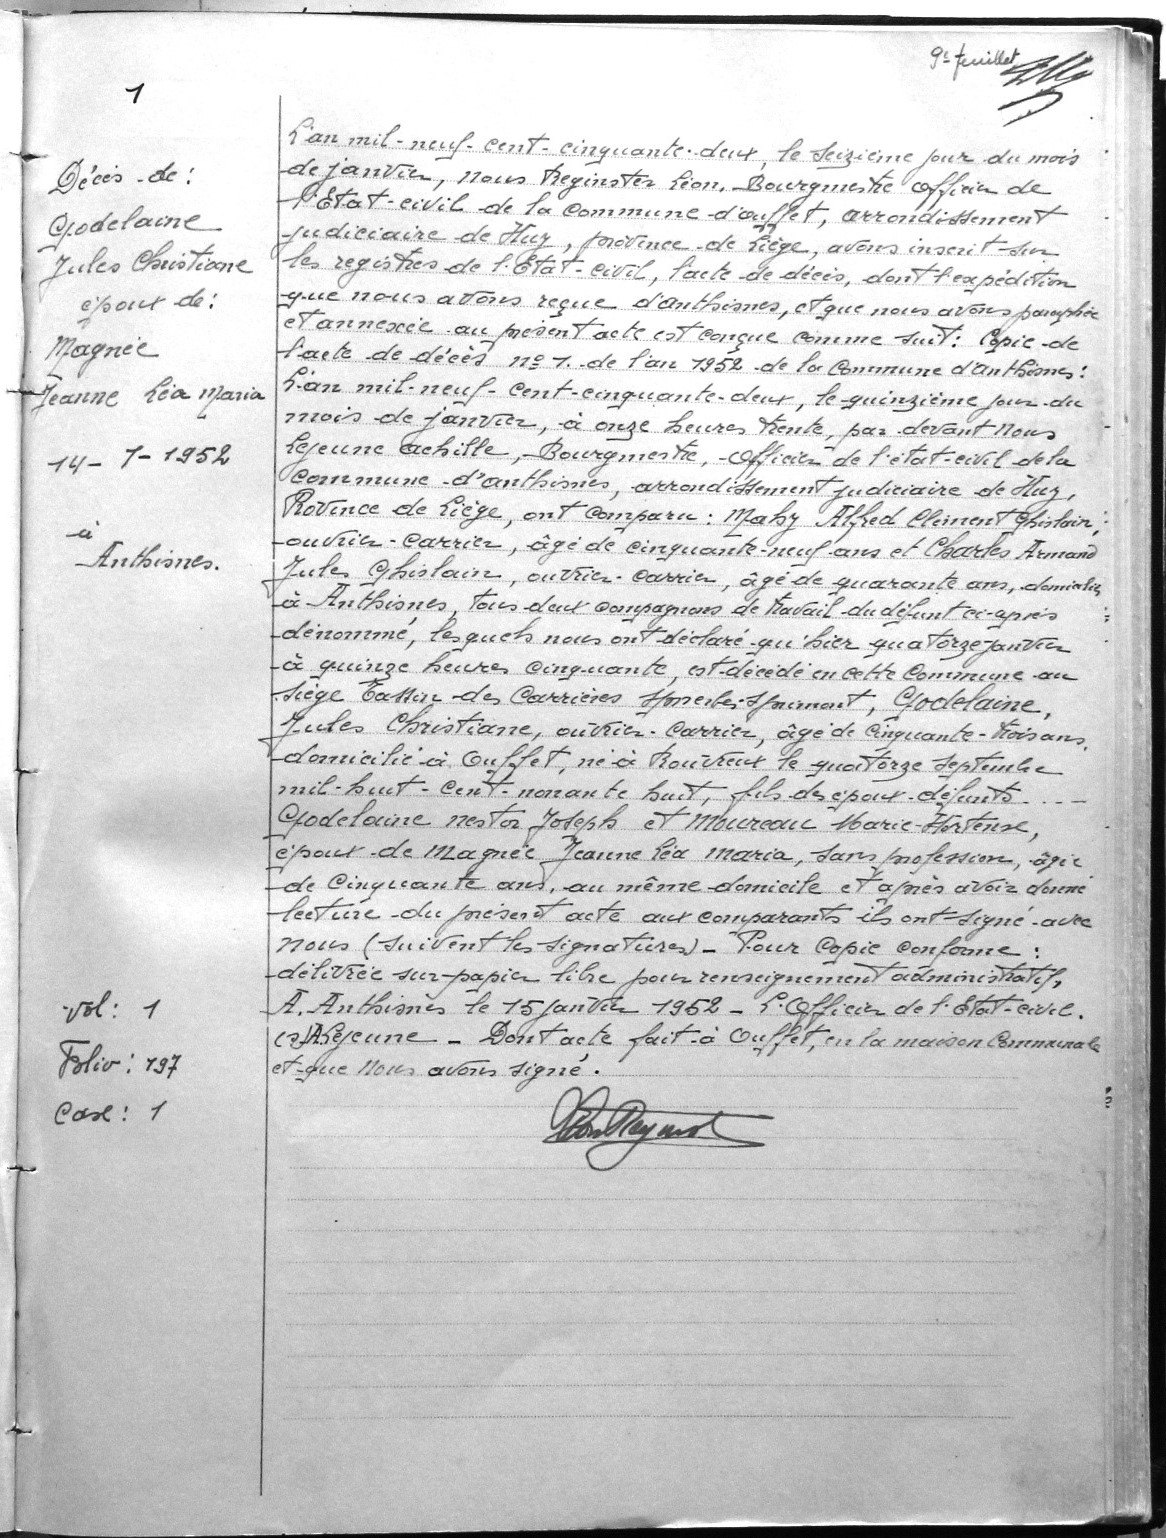 9e feuillet
1
Décès de :
Godelaine
Jules Christiane
époux de :
Magnée
Jeanne Léa Maria
14 - 1 - 1952
à
Anthisnes.
vol : 1
Folio : 197
Case : 1
L'an mil-neuf-cent-cinquante-deux, le seizième jour du mois
de janvier, nous Reginster Léon, Bourgmestre officier de
l'Etat-civil de la commune d'ouffet, arrondissement
judiciaire de Huy, province de Liège, avons inscrit sur
les registres de l'Etat-civil, l'acte de décès, dont l'expédition
que nous avons reçue d'anthisnes, et que nous avons paraphée
et annexée au présent acte est conçue comme suit : Copie de
l'acte de décès no 1. de l'an 1952 de la commune d'anthisnes :
L'an mil-neuf-cent-cinquante-deux, le quinzième jour du
mois de janvier, à onze heures trente, par devant Nous
Lejeune achille, Bourgmestre, officier de l'état-civil de la
commune d'anthisnes, arrondissement judiciaire de Huy,
Province de Liège, ont comparu : Mahy Alfred Clément Ghislain,
ouvrier-carrier, âgé de cinquante-neuf ans et Charles Armand
Jules Ghislain, ouvrier-carrier, âgé de quarante ans, domiciliés
à Anthisnes, tous deux compagnons de travail du défunt ci-après
dénommé, lesquels nous ont déclaré qu'hier quatorze janvier
à quinze heures cinquante, est décédé en cette commune au
siège Tassin des Carrières Sprimont, Godelaine,
Jules Christiane, ouvrier-carrier, âgé de cinquante-trois ans,
domicilié à Ouffet, né à Rouvreux le quatorze septembre
mil-huit-cent-nonante huit, fils des époux défunts ----
Godelaine Nestor Joseph et Moureau Marie-Hortense,
époux de Magnée Jeanne Léa Maria, sans profession, âgée
de cinquante ans, au même domicile et après avoir donné
lecture du présent acte aux comparants ils ont signé avec
nous (suivent les signatures) - Pour copie conforme :
délivrée sur papier libre pour renseignement administratif,
A. Anthisnes le 15 janvier 1952 - L'Officier de l'Etat-civil.
(s) A. Lejeune - Dont acte fait à Ouffet, en la maison Communale
et que Nous avons signé.